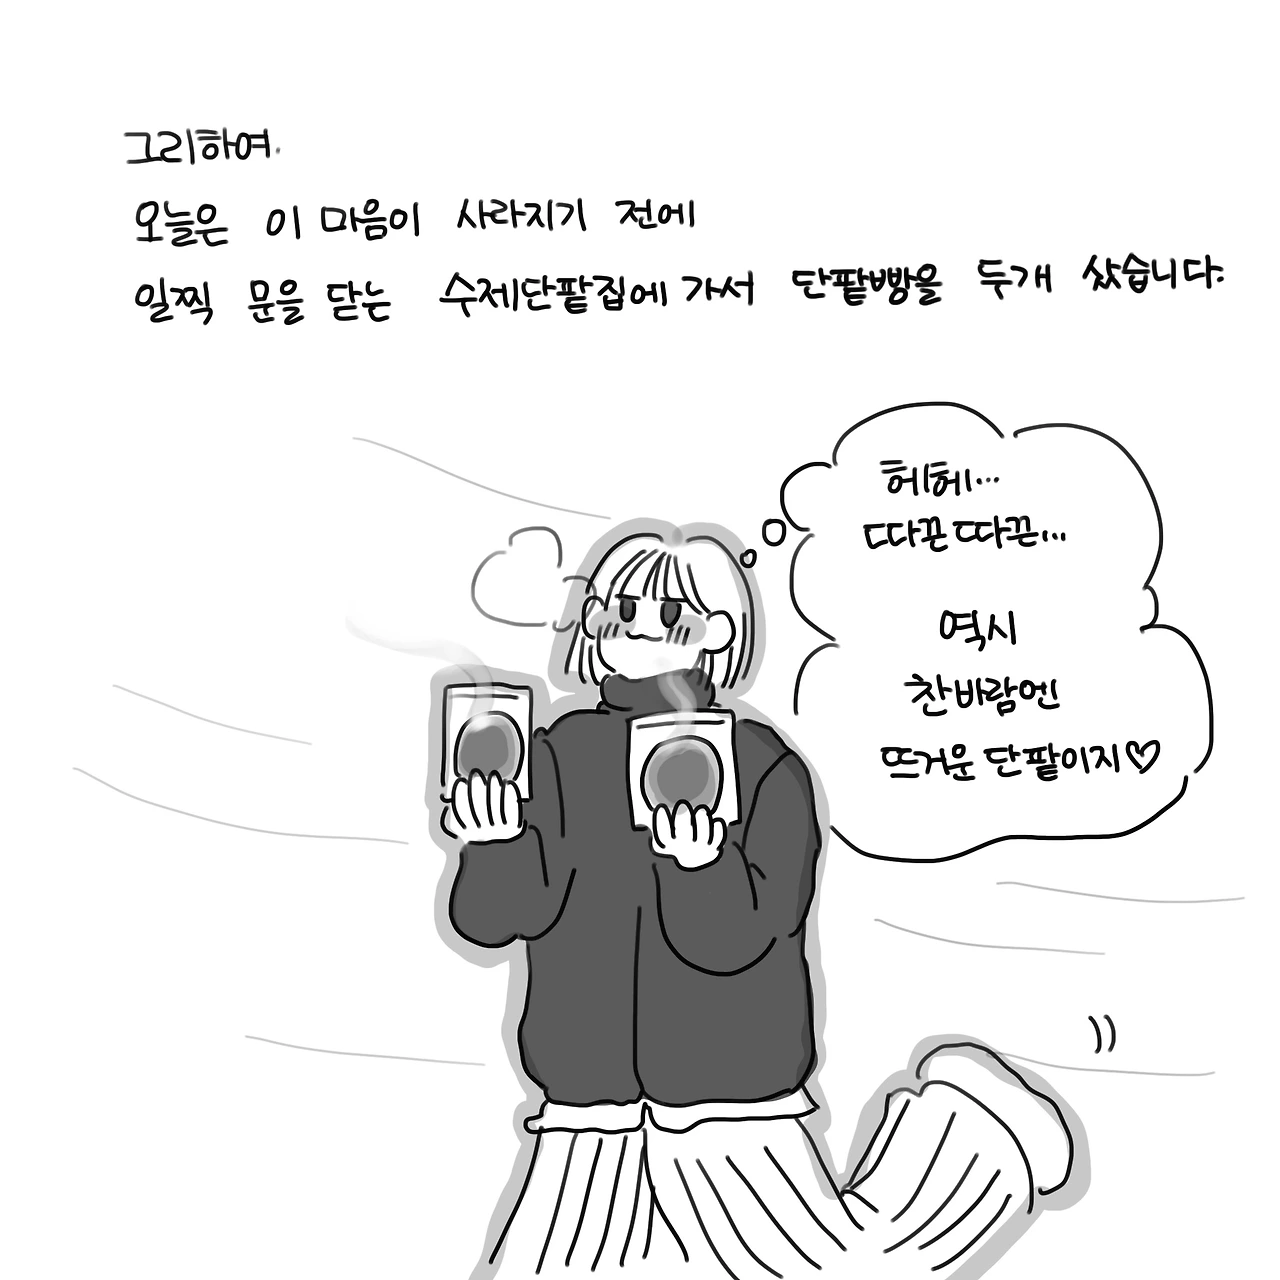 그리하여.
오늘은 이 마음이 사라지기 전에
일찍 문을 닫는 수제단팥집에 가서 단팥빵을 두개 샀습니다.
헤헤...
따끈따끈...
역시
찬바람엔
뜨거운 단팥이지♡